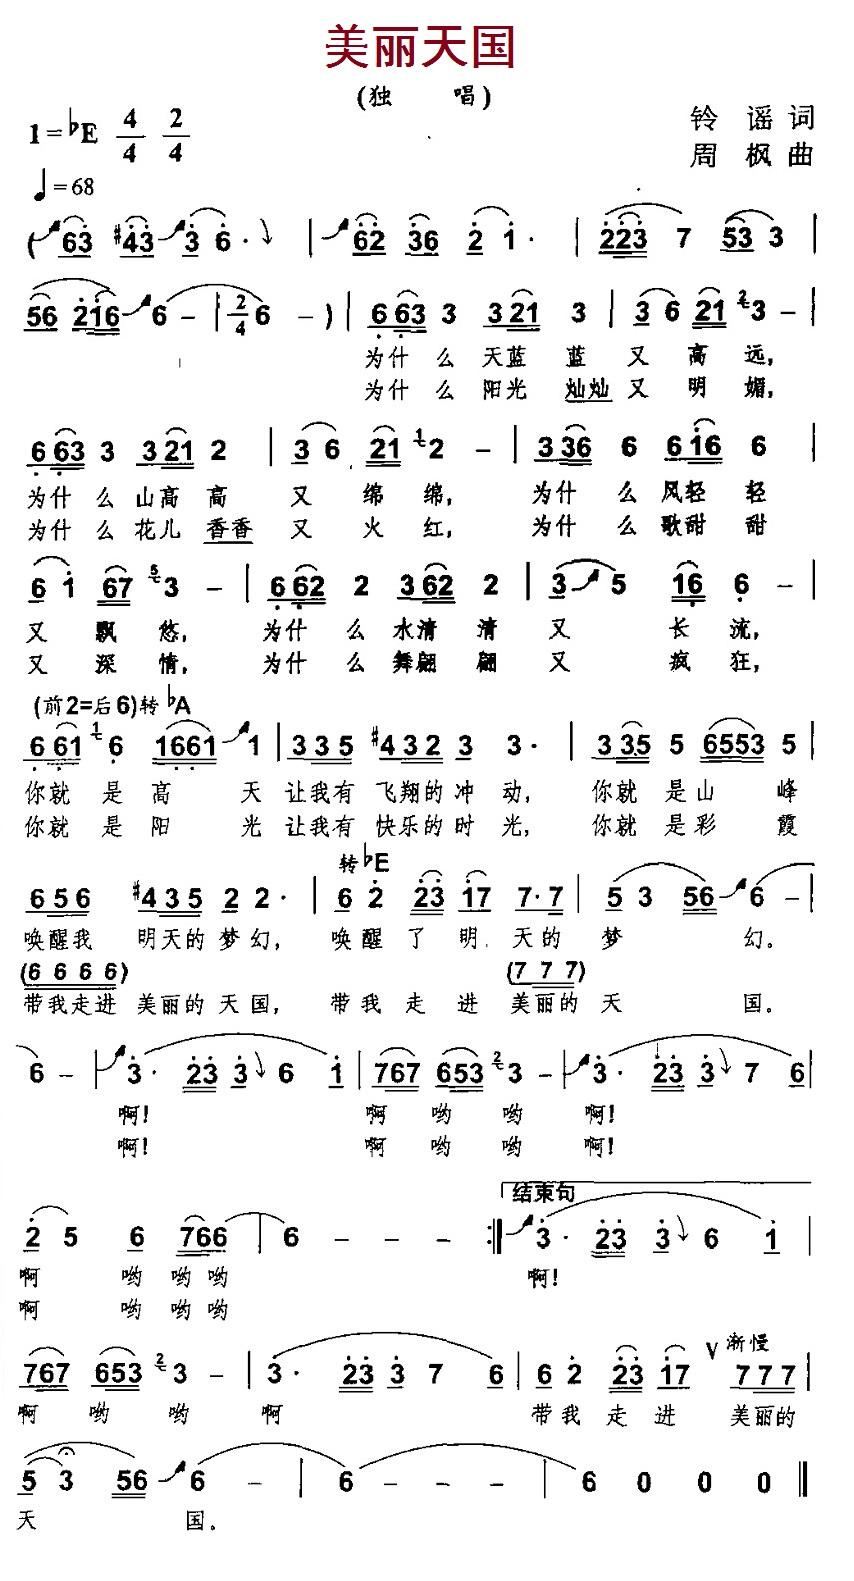 美丽天国
(独 唱)
1=♭E 4/4 2/4
铃 谣 词
周 枫 曲
♩=68
( 63 #43 3 6· | 62 36 2 1· | 223 7 53 3 |
56 216 6 - | 2/4 6 - ) | 6 63 3 3 21 3 | 3 6 21 2 3 - |
为什 么 天蓝 蓝 又 高 远,
为什 么 阳光 灿灿 又 明 媚,
6 63 3 3 21 2 | 3 6 21 1 2 - | 3 36 6 6 16 6 |
为什 么 山高 高 又 绵 绵, 为什 么 风轻 轻
为什 么 花儿 香香 又 火 红, 为什 么 歌甜 甜
6 1 67 5 3 - | 6 62 2 3 62 2 | 3 5 16 6 - |
又 飘 悠, 为什 么 水清 清 又 长 流,
又 深 情, 为什 么 舞翩 翩 又 疯 狂,
(前2=后6)转♭A
6 61 1 6 1661 1 | 3 3 5 #4 3 2 3 3· | 3 35 5 6553 5 |
你就 是 高 天 让我有 飞翔的 冲 动, 你就 是山 峰
你就 是 阳 光 让我有 快乐的 时 光, 你就 是彩 霞
转♭E
6 5 6 #4 3 5 2 2· | 6 2 23 17 7· 7 | 5 3 56 6 - |
唤醒我 明天的 梦幻, 唤醒 了 明 天的 梦 幻。
(6 6 6 6) (7 7 7)
带我走进 美丽的 天国, 带我 走 进 美丽的 天 国。
6 - | 3· 23 3 6 1 | 767 653 2 3 - | 3· 23 3 7 6 |
啊! 啊 哟 哟 啊!
啊! 啊 哟 哟 啊!
结束句
2 5 6 766 | 6 - - - :‖ 3· 23 3 6 1 |
啊 哟 哟 哟 啊!
啊 哟 哟 哟
渐慢
767 653 2 3 - | 3· 23 3 7 6 | 6 2 23 17 ∨ 7 7 7 |
啊 哟 哟 啊 带我 走 进 美丽的
5 3 56 6 - | 6 - - | 6 0 0 0 ‖
天 国。